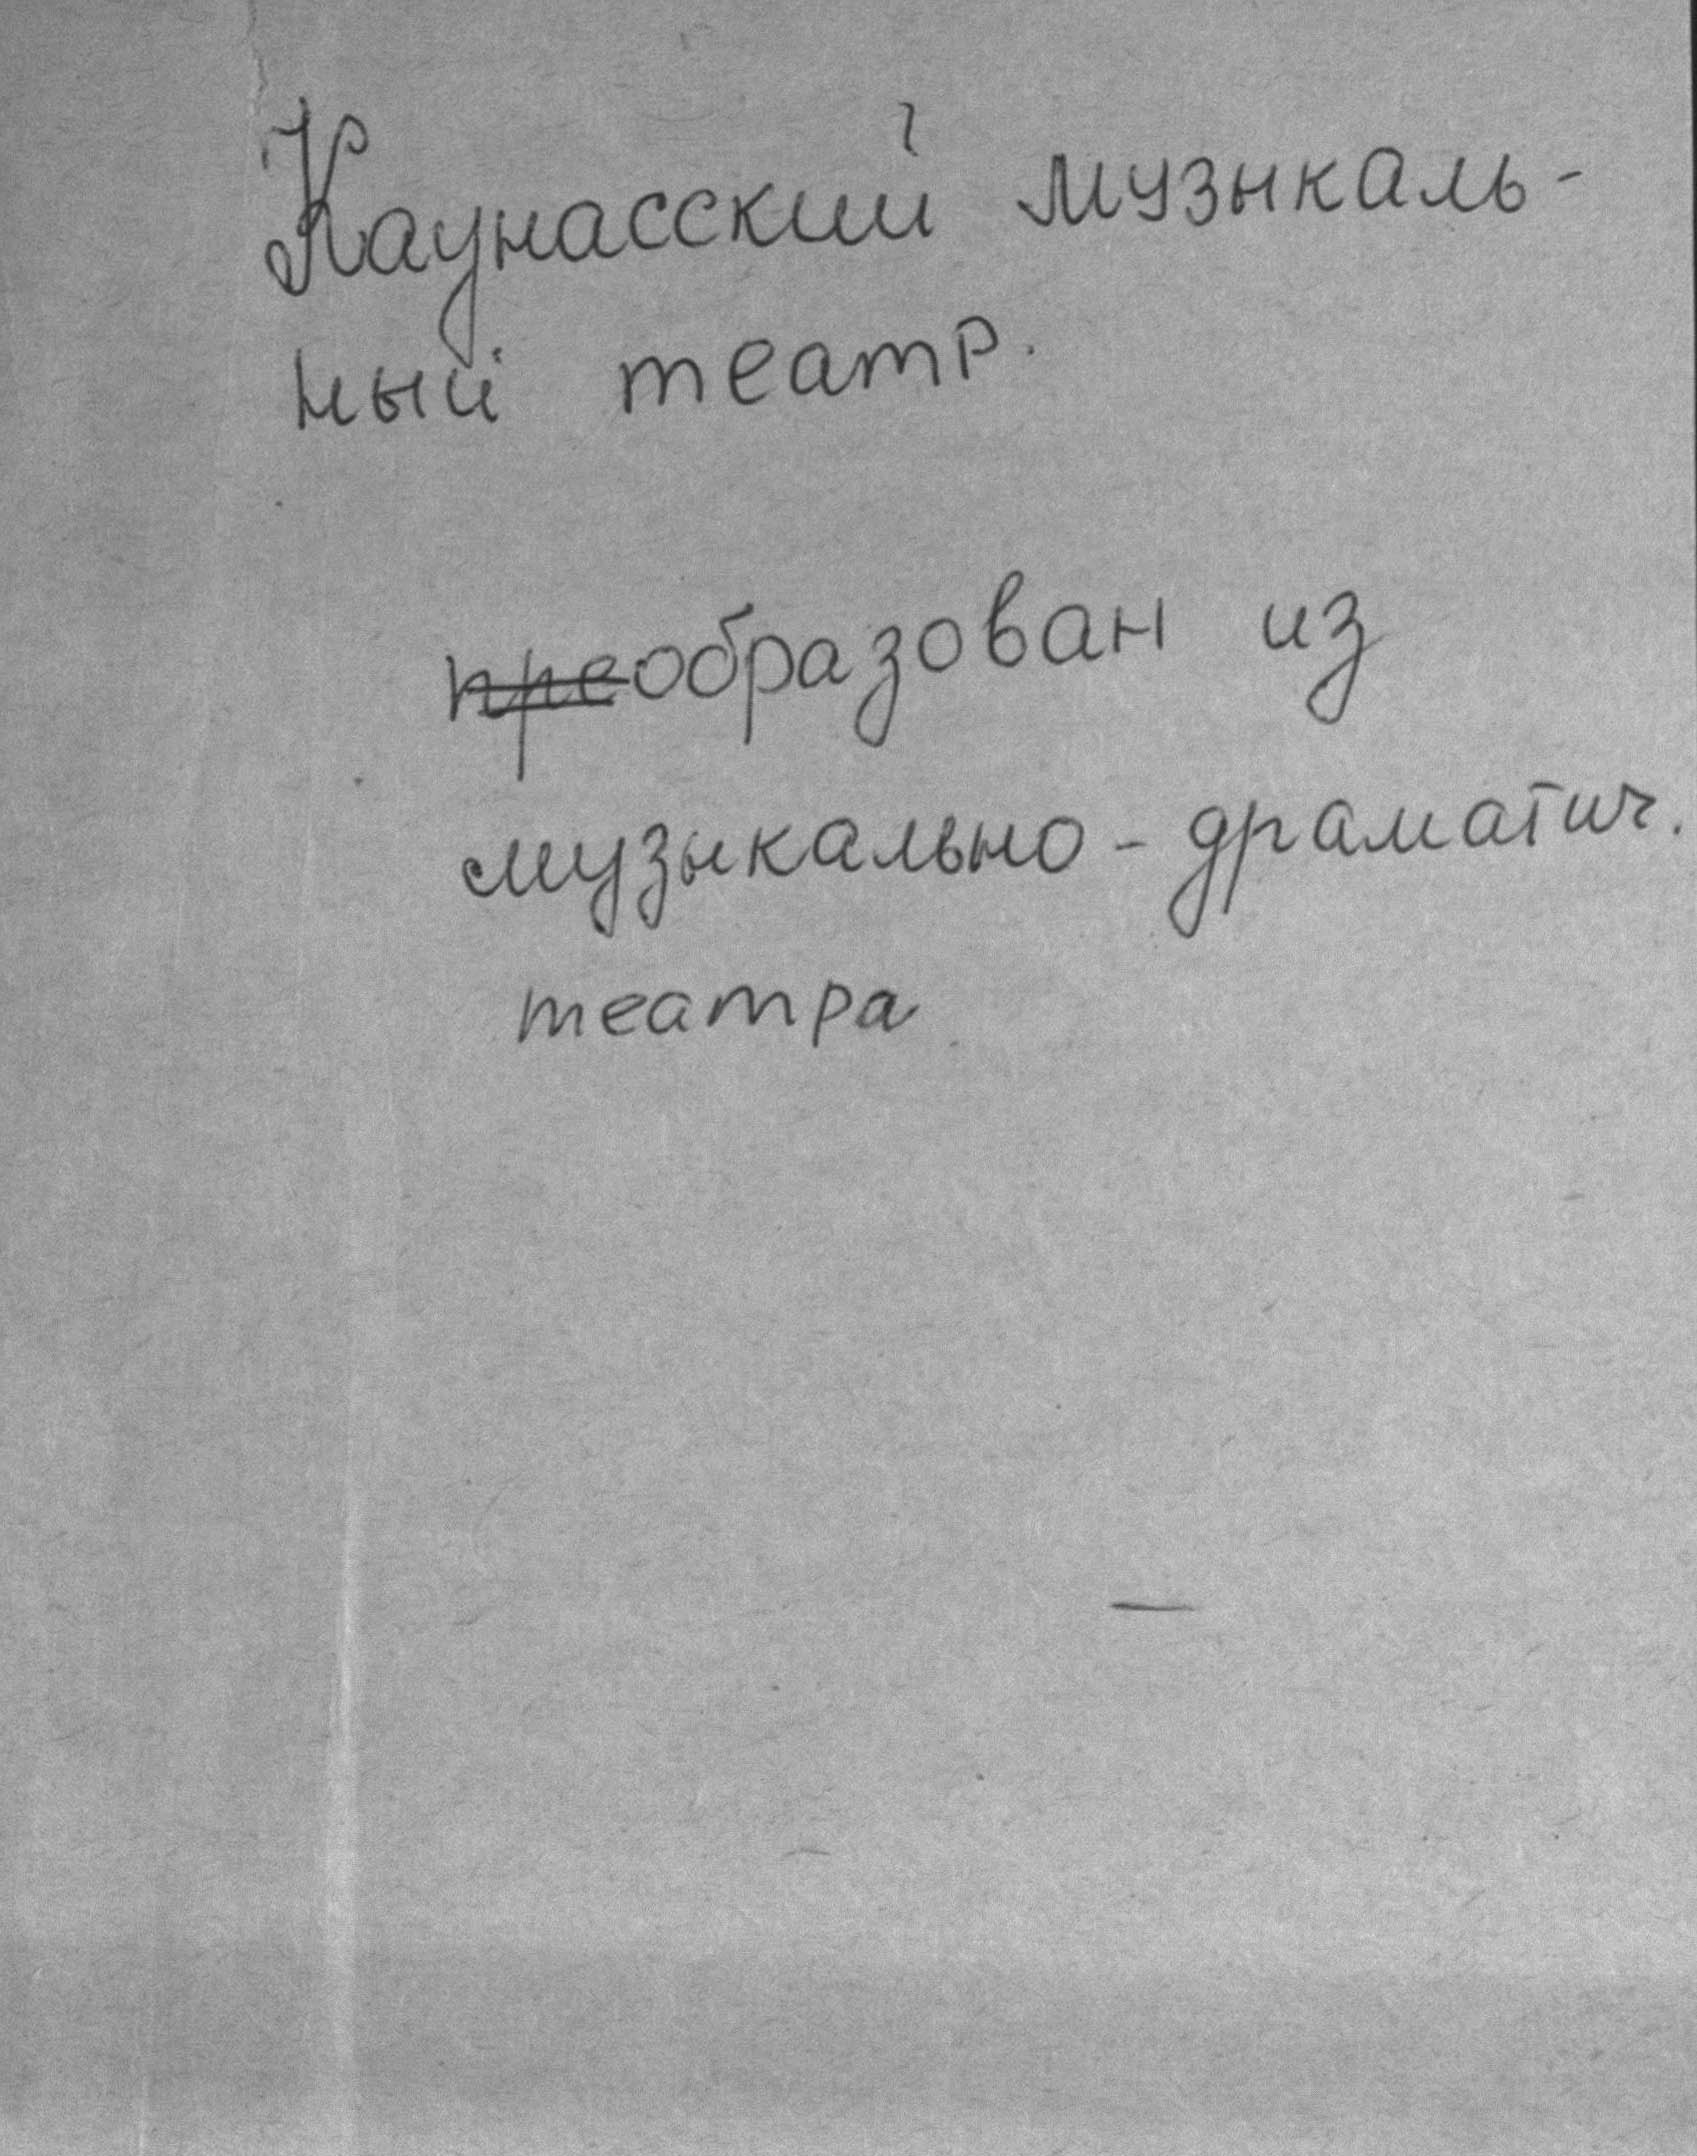 Каунасский музыкаль-
ный театр.
преобразован из
музыкально-драматич.
театра